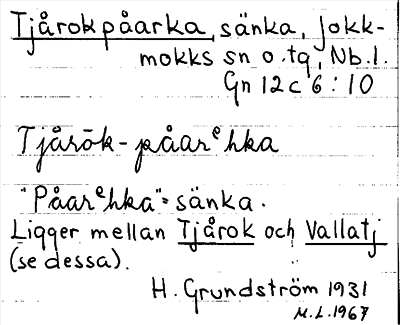 Tjårokpåarka, sänka, Jokk-
mokks sn o. tg, Nb. l.
Gn 12 c 6 : 10
Tjårōk-påarᵉhka
"Påarᵉhka" = sänka.
Ligger mellan Tjårok och Vallatj
(se dessa).
H. Grundström 1931
M.L. 1967